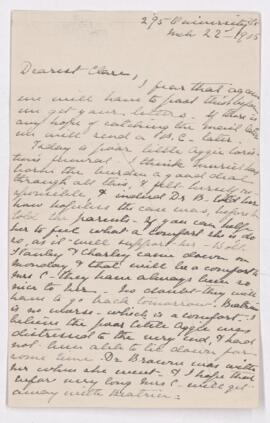 295 University St
Mch 22nd 1905
Dearest Clare,
I fear that again
we will have to post this before
we get your letters. If there is
any hope of catching the mail later
we will send a P.C. later.
Today is poor little Aggie
funeral. I think Muriel has
borne the burden a good deal
through all this, & felt herself
& indeed Dr B. told her
how hopeless the case was before he
told the parents. If you can help
her to feel what a comfort she is do
so, as it will support her. Both
Stanley & Charley came down on
Monday & that will be a comfort to
Mrs C. they have always been so
nice to her. No doubt they will
have to go back tomorrow. Beatrice
is no worse. which is a comfort. I
believe the poor little Aggie was
distressed to the very end, & had
not been able to lie down for
some time. Dr Brown was with
her when she went. & I hope that
before very long Mrs C. will get
away with Beatrice.